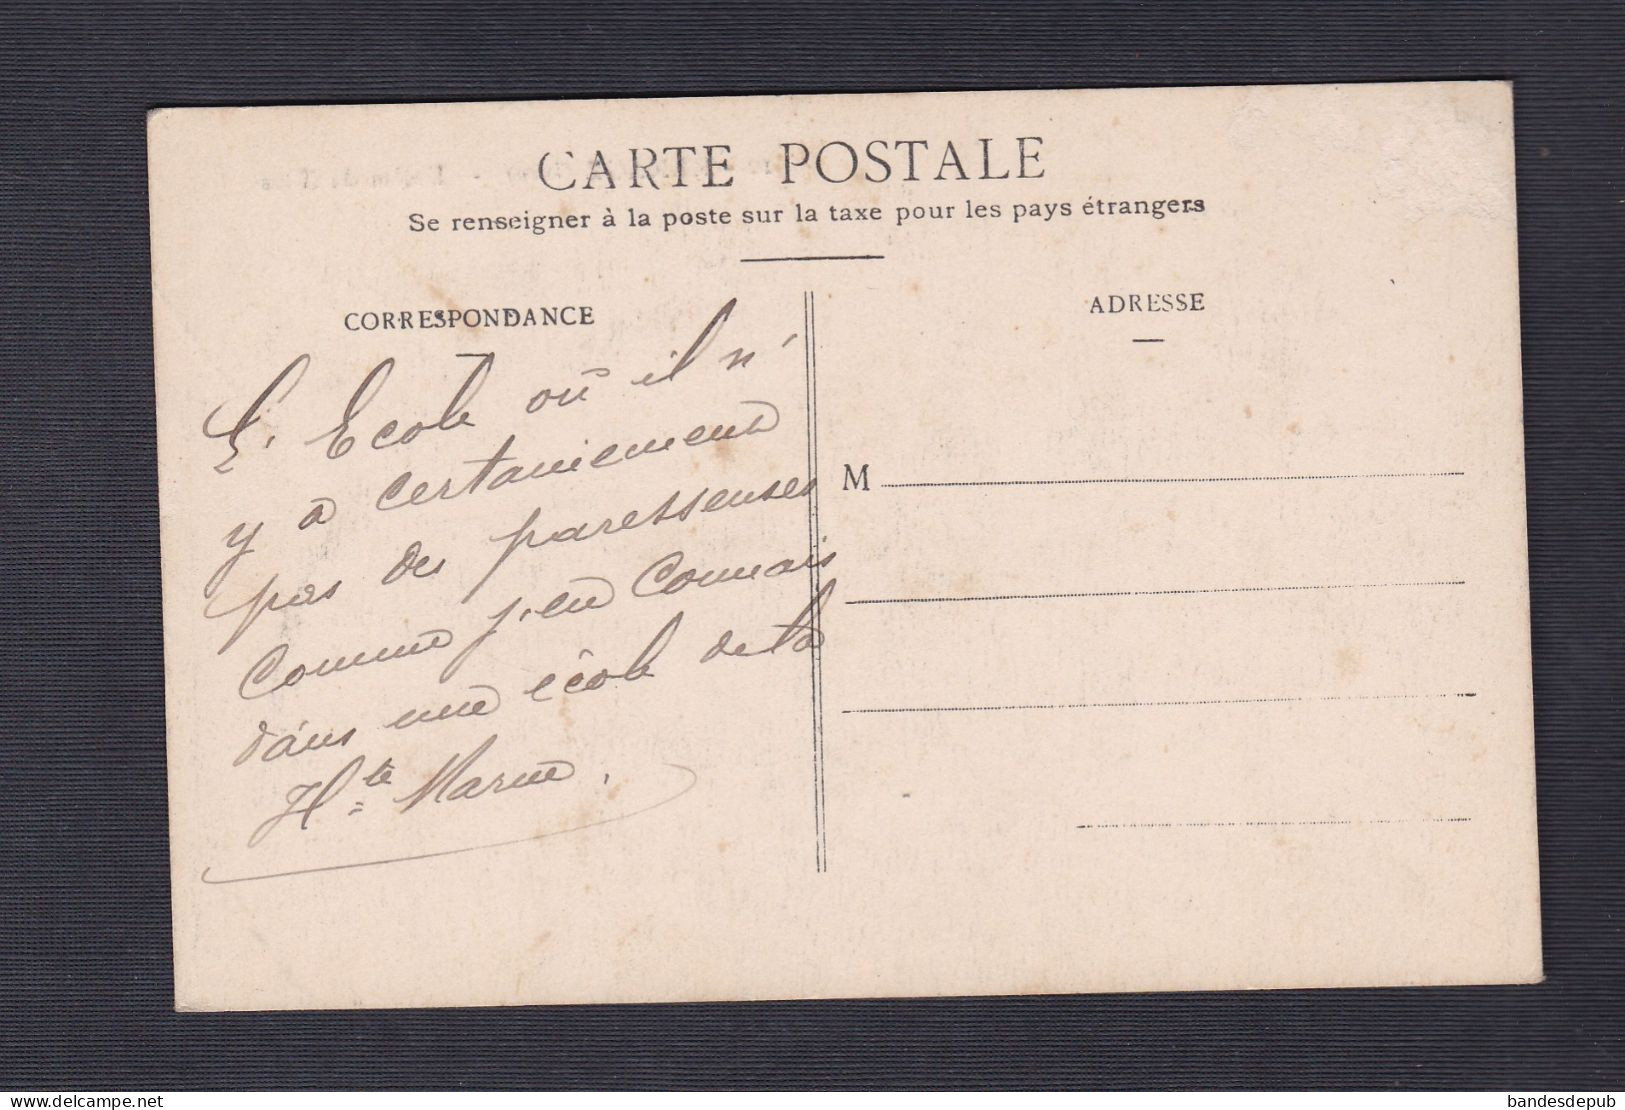 CARTE POSTALE
Se renseigner à la poste sur la taxe pour les pays étrangers
CORRESPONDANCE
L'Ecole où il n'
y a certainement
pas des paresseuses
comme j'en connais
dans une école de la
Hte Marne.
ADRESSE
M
delcampe.net
bandesdepub